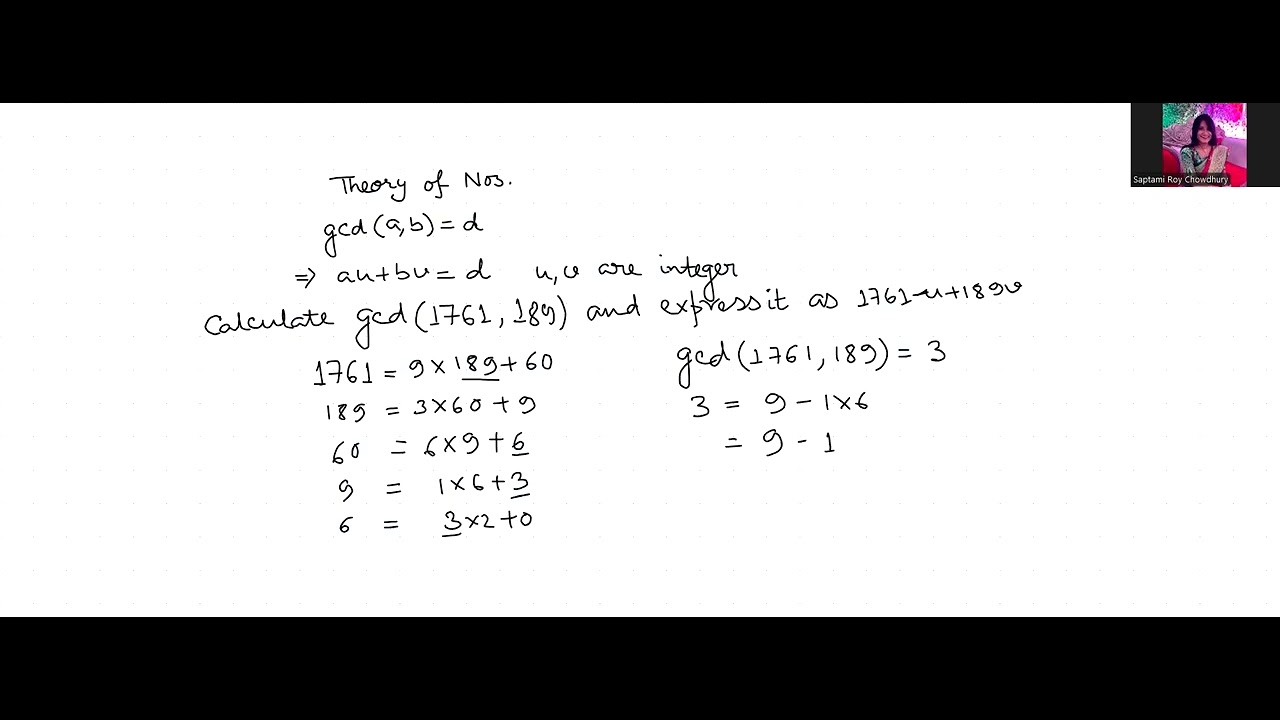 Theory of Nos.
gcd (a,b) = d
⇒ au+bv = d u,v are integer
Calculate gcd (1761, 189) and express it as 1761u+189v
1761 = 9 × 189 + 60
189 = 3×60 + 9
60 = 6×9 + 6
9 = 1×6 + 3
6 = 3×2 + 0
gcd (1761, 189) = 3
3 = 9 - 1×6
= 9 - 1
Saptami Roy Chowdhury